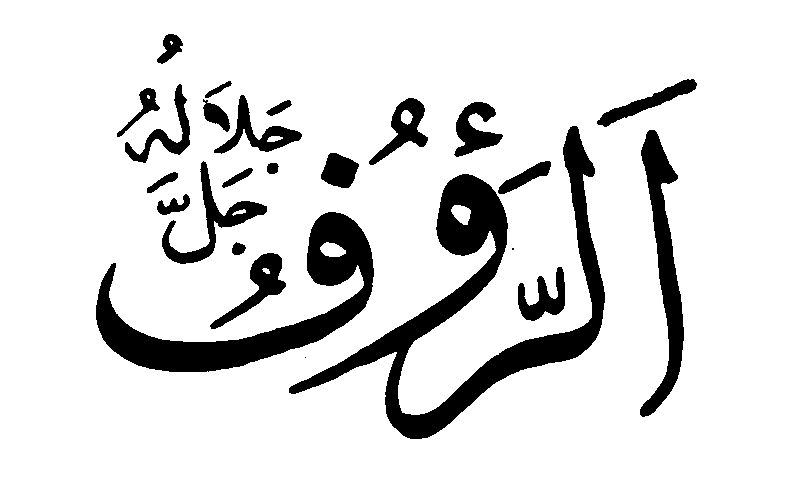 الرَّؤُفُ
جَلَّ جَلَالُهُ